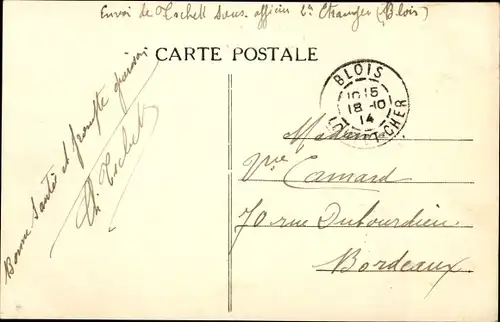 Envoi de Tschell Sous. officier 2e Etranger (Blois)
CARTE POSTALE
BLOIS
10 15
18-10
14
LOIR-ET-CHER
Bonne Santé et prompte guérison
Ch. Tschell
Madame
Vve Camard
70 rue Dubourdieu
Bordeaux.